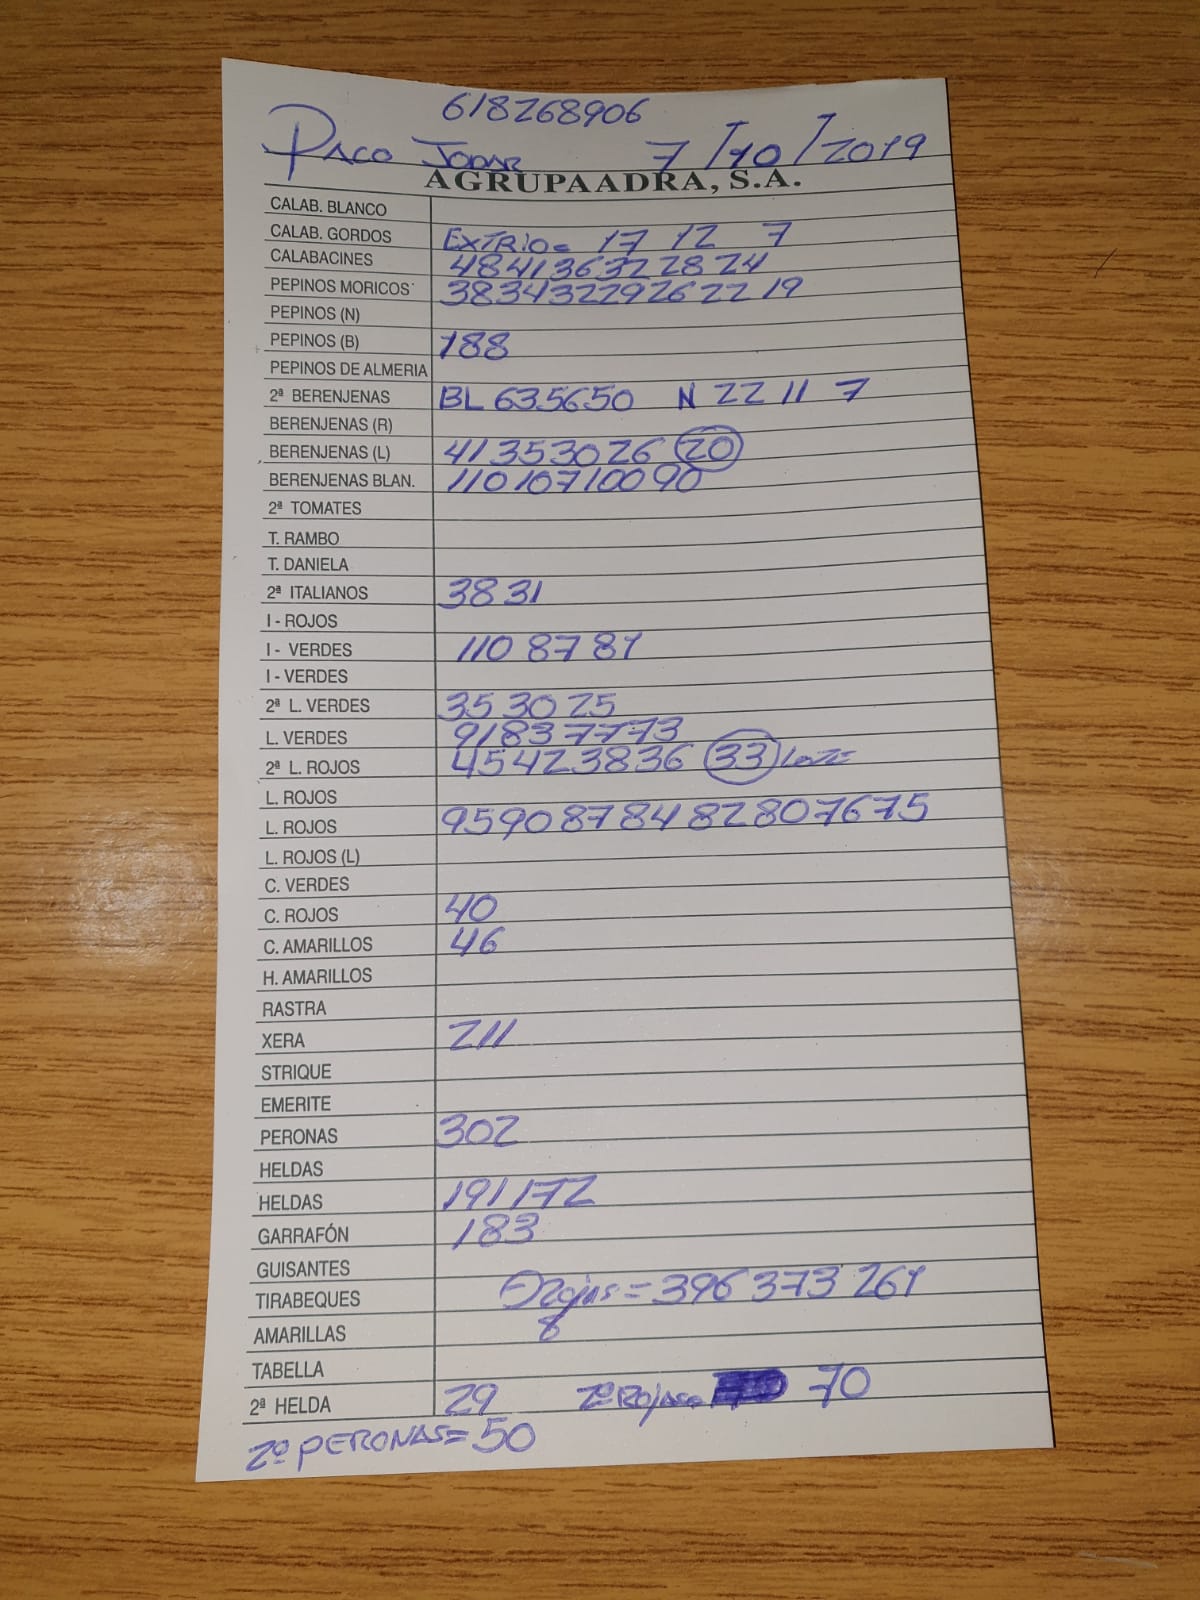 618268906
PACO JODAR 7/10/2019
AGRUPAADRA, S.A.
CALAB. BLANCO
CALAB. GORDOS EXTRIO= 17 12 7
CALABACINES 48 41 36 32 28 24
PEPINOS MORICOS 38 34 32 29 26 22 19
PEPINOS (N)
PEPINOS (B) 188
PEPINOS DE ALMERIA
2ª BERENJENAS BL 63 56 50 N 22 11 7
BERENJENAS (R)
BERENJENAS (L) 41 35 30 26 20
BERENJENAS BLAN. 110 107 100 90
2ª TOMATES
T. RAMBO
T. DANIELA
2ª ITALIANOS 38 31
I - ROJOS
I - VERDES 110 87 81
I - VERDES
2ª L. VERDES 35 30 25
L. VERDES 91 83 77 73
2ª L. ROJOS 45 42 38 36 33
L. ROJOS
L. ROJOS 95 90 87 84 82 80 76 75
L. ROJOS (L)
C. VERDES
C. ROJOS 40
C. AMARILLOS 46
H. AMARILLOS
RASTRA
XERA 211
STRIQUE
EMERITE
PERONAS 302
HELDAS
HELDAS 191 172
GARRAFÓN 183
GUISANTES
TIRABEQUES = 396 373 261
AMARILLAS 8
TABELLA
2ª HELDA 29 70
2ª PERONAS= 50